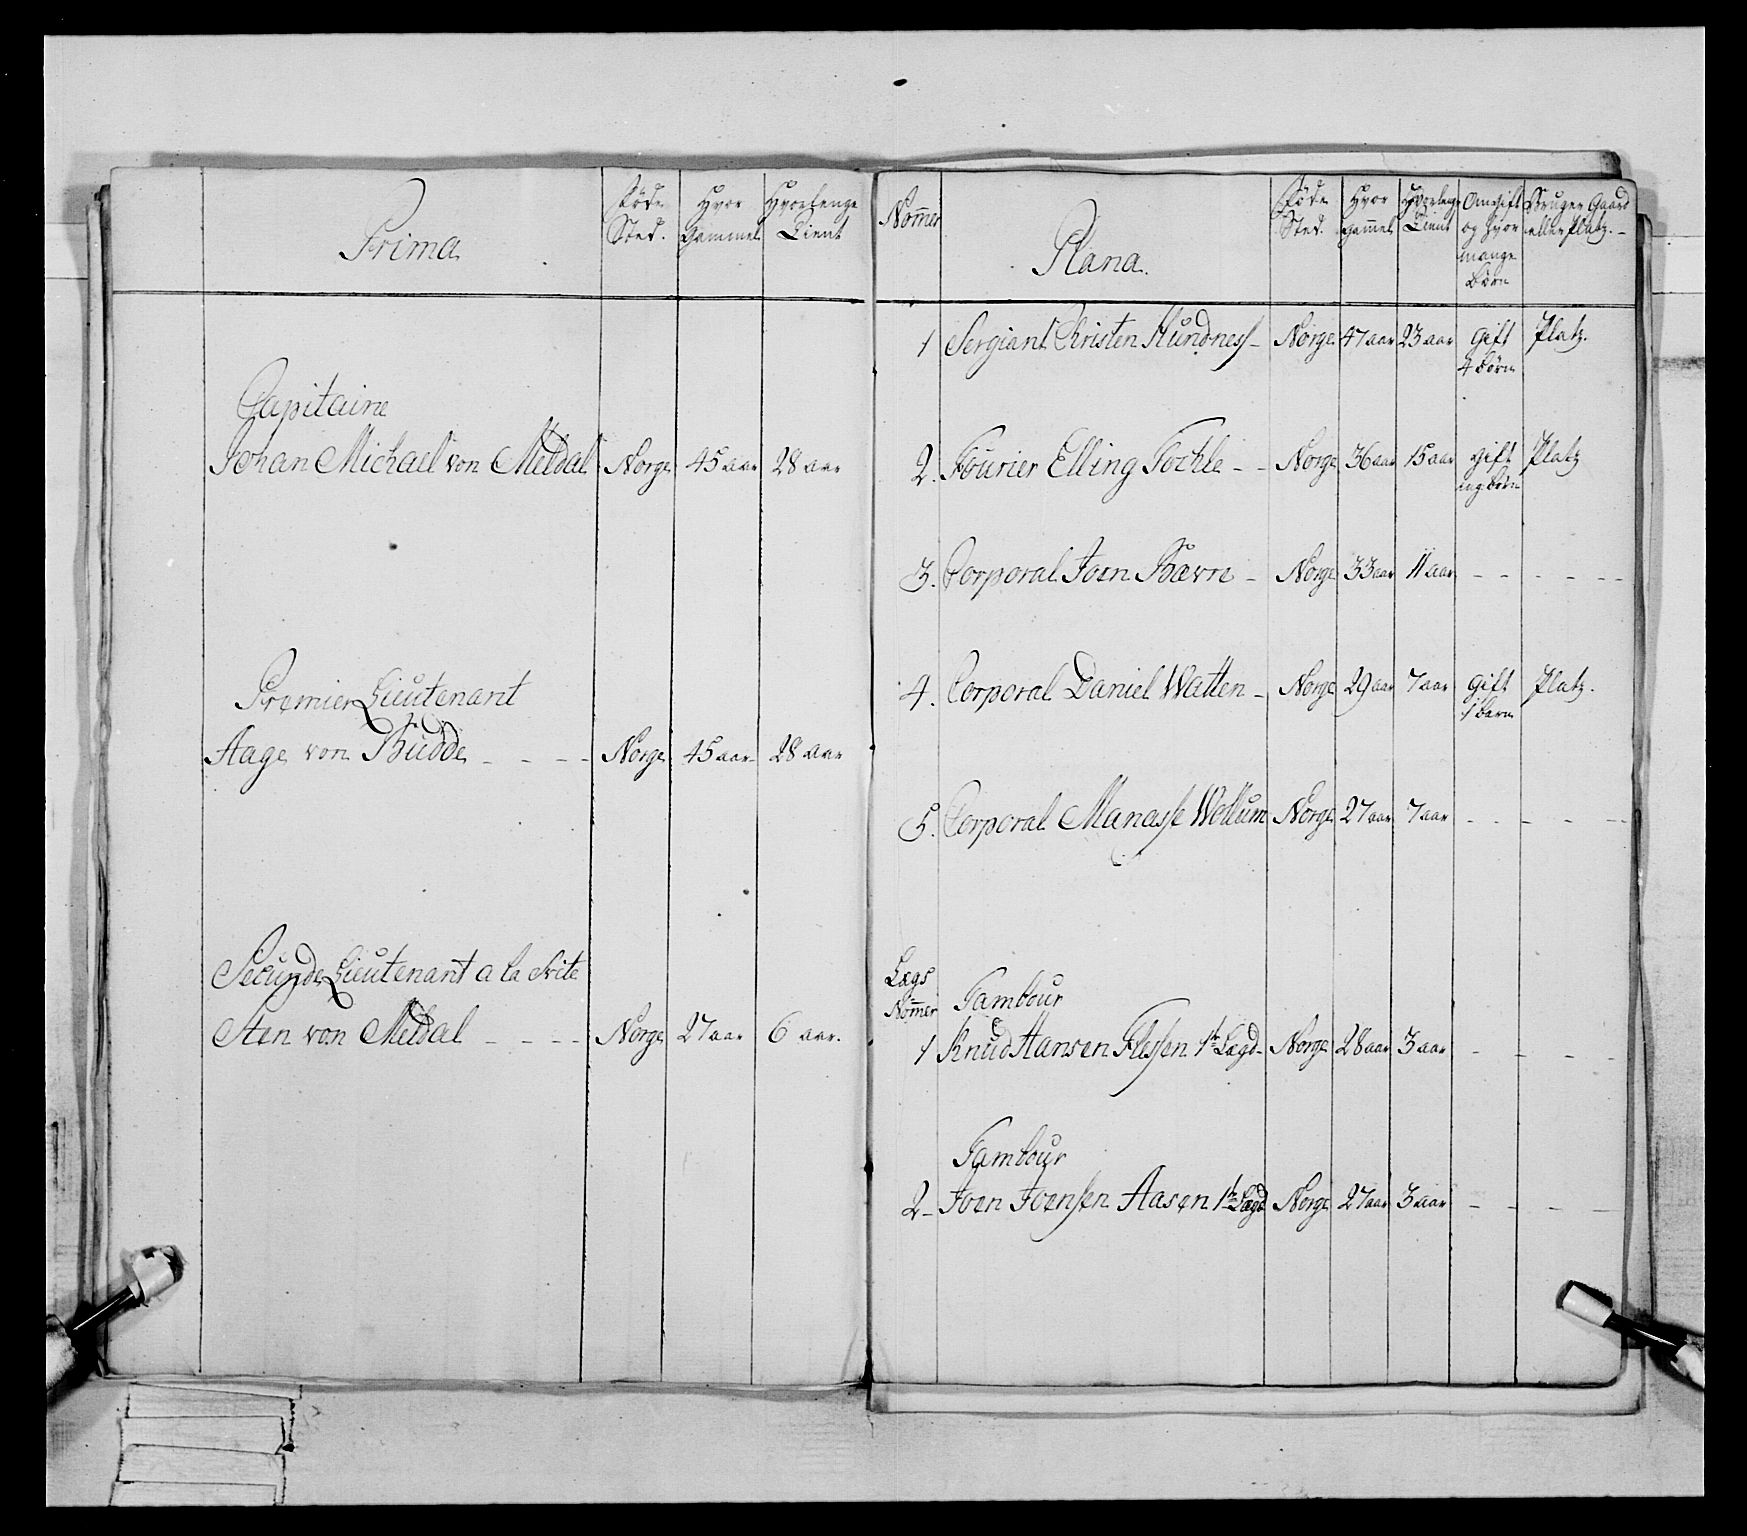 Prima
Föde
Sted.
Hvor
Gammel
Hvorlenge
Tient
Capitaine
Johan Michael von Meldal Norge 45 aar 28 aar
Premier Lieutenant
Aage von Büdde - - - - Norge 45 aar 28 aar
Secunde Lieutenant a la Svite
Sten von Meldal - - - - Norge 27 aar 6 aar.
Nom̄er
Plana.
Föde
Sted.
Hvor
Gam̄el
Hvorleng
Tient
Om gift
og hvor
mange
Börn
Bruger Gaard
eller Platz. -
1 Sergiant Christen Kundness - Norge 47 aar 23 aar gift Platz.
4 börn
2. Fourier Elling Tochle - - Norge 36 aar 15 aar gift Platz
ing börn
3. Corporal Joen Bævre - Norge 33 aar 11 aar - - - - - -
4. Corporal Daniel Watten - Norge 29 aar 7 aar gift Platz.
1 barn
5. Corporal Manasse Wollum Norge 27 aar 7 aar - - - - -
Lægs
Nom̄er
Tambour
1 Knud Hansen Flessen 1te Lægd - Norge 28 aar 3 aar - - - -
Tambour
2 - Joen Joensen Aasen 1te Lægd Norge 27 aar 3 aar - - - -